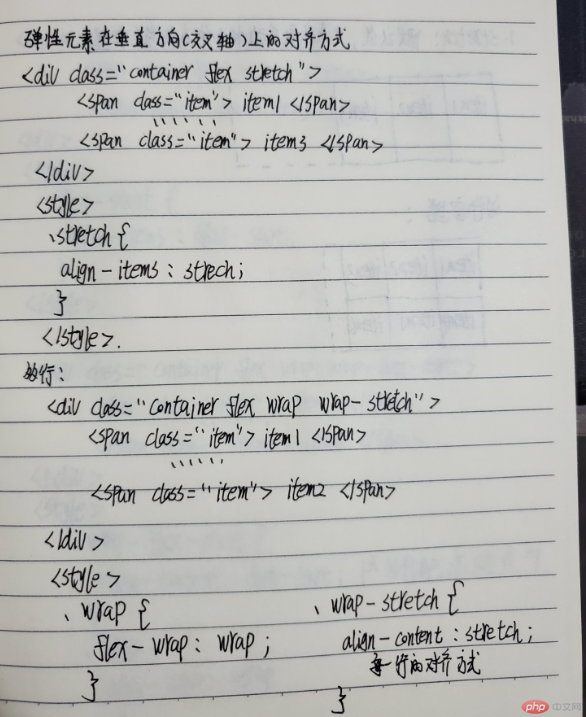 弹性元素在垂直方向(交叉轴)上的对齐方式
<div class="container flex stretch">
<span class="item"> item1 </span>
......
<span class="item"> item3 </span>
</div>
<style>
.stretch {
align-items : strech;
}
</style>.
多行:
<div class="container flex wrap wrap-stretch">
<span class="item"> item1 </span>
......
<span class="item"> item2 </span>
</div>
<style>
.wrap {
flex-wrap: wrap;
}
.wrap-stretch {
align-content : stretch;
每一行的对齐方式
}
php 中文网